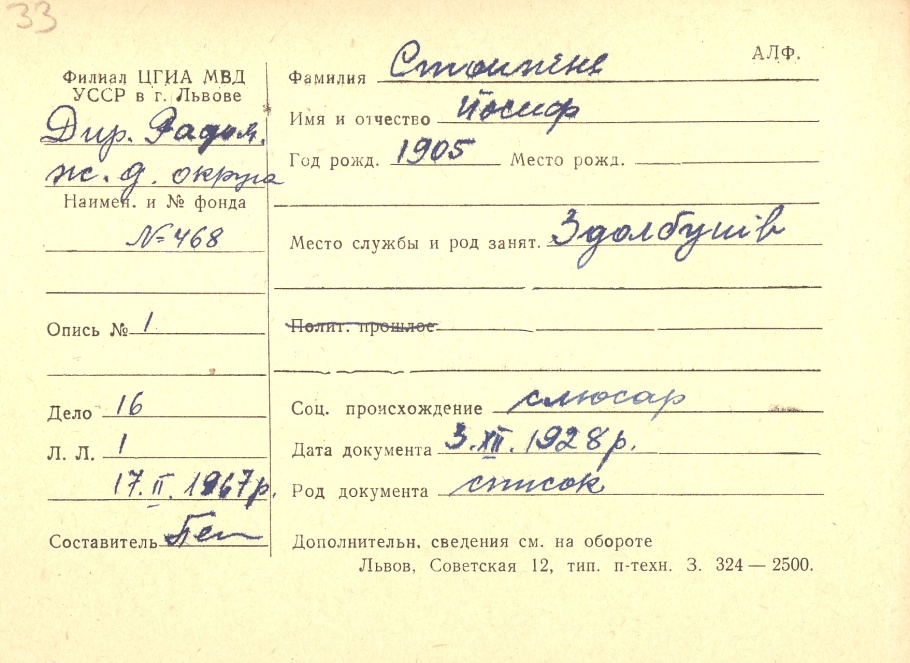 33
АЛФ.
Филиал ЦГИА МВД
УССР в г. Львове
Дир. Радом.
ж. д. округа
Наимен. и № фонда
№ 468
Опись № 1
Дело 16
Л. Л. 1
17. II. 1967 р.
Составитель
Фамилия
Имя и отчество Йосиф
Год рожд. 1905 Место рожд.
Место службы и род занят. Здолбунів
Полит. прошлое
Соц. происхождение слюсар
Дата документа 3. XII. 1928 р.
Род документа список
Дополнительн. сведения см. на обороте
Львов, Советская 12, тип. п-техн. З. 324 — 2500.